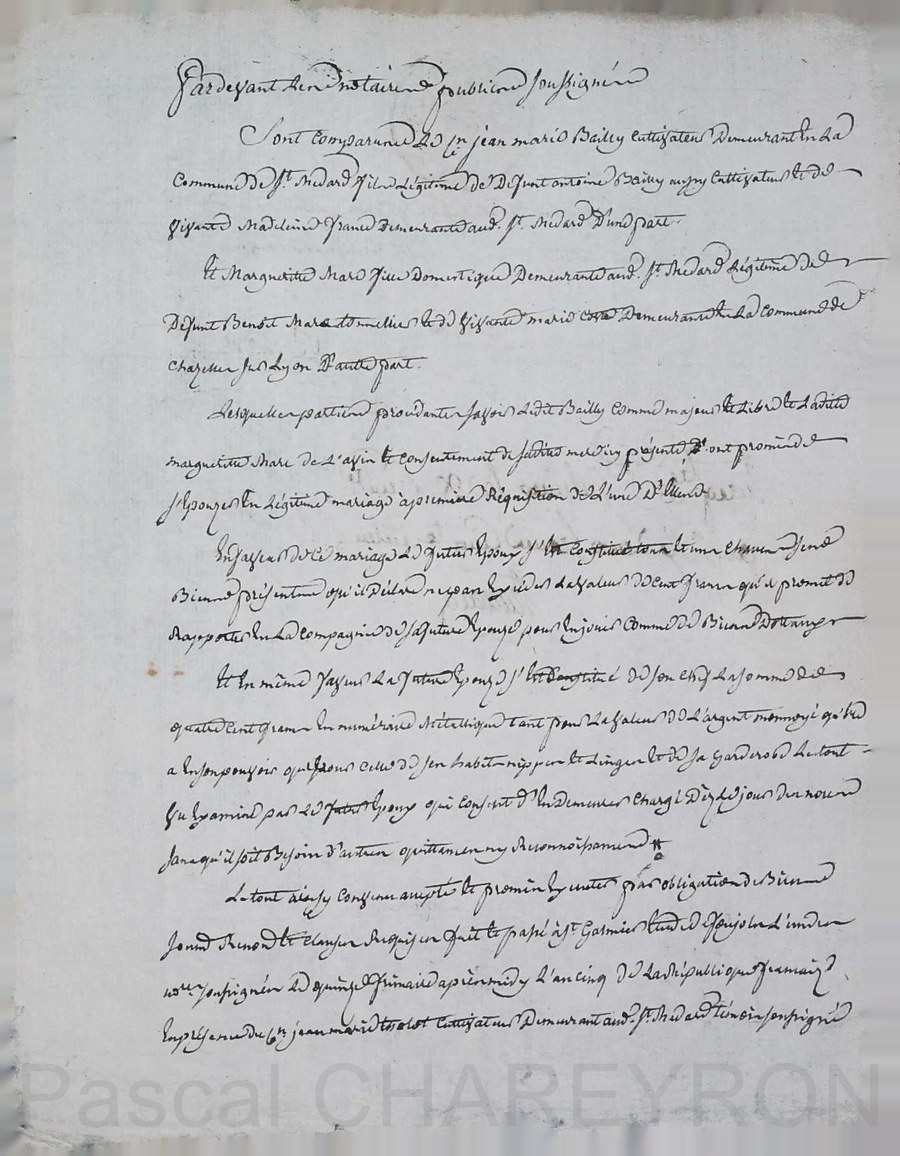 Pardevant Les notaires publics soussignés
Sont Comparus Le Cn jean marie Bailly Cultivateur Demeurant En La
Commune De St. Medard fils Légitime De Défunt antoine Bailly aussy Cultivateur Et de
vivante Madeleine france Demeurante aud. St. Medard D'une part.
Et Marguerite Marc fille Domestique Demeurante aud. St. Medard Légitime de
Défunt Benoit Marc tonnellier Et de vivante marie Demeurante En La Commune de
Chazelles sur Lyon D'autre part.
Lesquelles parties procédantes savoir Ledit Bailly Comme majeur Et Libre Et Ladite
marguerite Marc de L'avis Et Consentement de sadite mere icy présente, ont promis de
s'Epouser En Légitime mariage à première Réquisition de L'une D'Elles
En faveur de Ce mariage Le futur Epoux s'Est Constitué tous Et uns Chacuns ses
Biens présents qu'il Déclare ne pas Excéder La valeur De cent francs qu'il promet de
Rapporter En La Compagnie de sa future Epouse pour En jouir Comme de Biens Dotaux
Et En même faveur La future Epouse s'Est Constitué de son Chef La somme de
quatre Cent francs En numéraire Métallique tant pour La valeur De L'argent monnoyé qu'elle
a En son pouvoir que pour Celle de ses habits nippes Et Linges Et de sa Garderobe Le tout
vu Examiné par Le futur Epoux qui Consent D'En Demeurer Chargé Dez Le jour des noces
sans qu'il soit Besoin D'autres quittances ny Reconnoissances
Le tout ainsy Convenu accepté Et promis Executer par obligation de Biens
soumis Renonce Et Clauses Requises fait Et passé à St. Galmier Etude de L'un des
nores. soussignés Le quinze frimaire après midy L'an cinq de La République française
En présence du Cn. jean marie Cultivateur Demeurant aud. St. Medard témoin soussigné
Pascal CHAREYRON